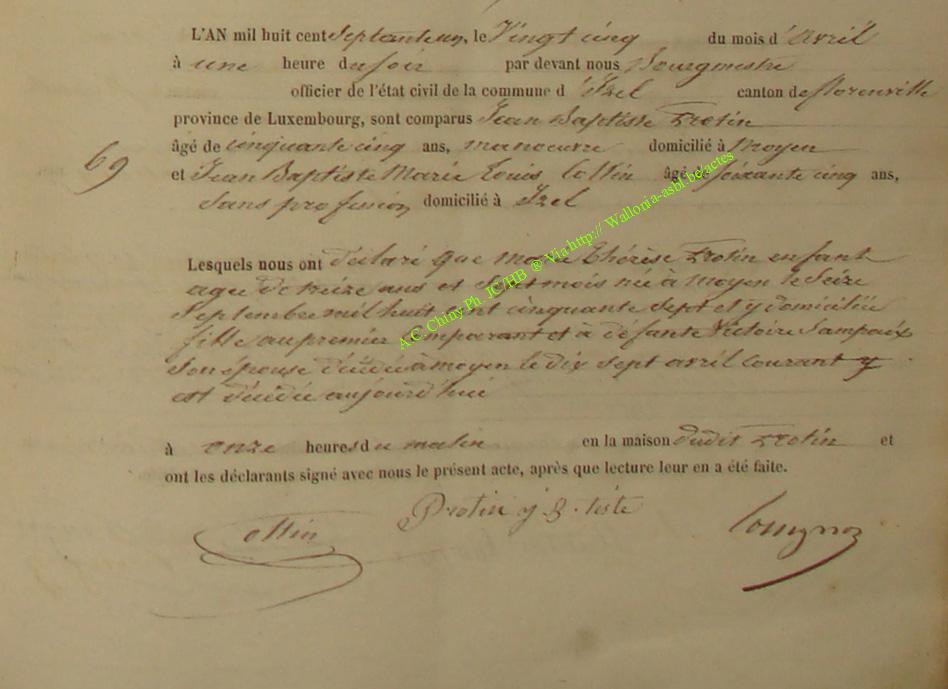 L'AN mil huit cent septante un, le Vingt cinq du mois d'Avril
à une heure du soir par devant nous Bourgmestre
officier de l'état civil de la commune d'Izel canton de florenville
province de Luxembourg, sont comparus Jean Baptiste Protin
âgé de cinquante cinq ans, manoeuvre domicilié à Moyen
69
et Jean Baptiste Marie Louis Cottin âgé de soixante cinq ans,
sans profession domicilié à Izel
Lesquels nous ont déclaré que Marie Thérèse Protin enfant
agée de treize ans et mois née à moyen le Seize
Septembre mil huit cent cinquante sept et y domiciliée
fille au premier comparant et à défunte Victoire
son épouse décédée à moyen le dix sept avril courant y
est décédée aujourd'hui
à onze heures du matin en la maison dudit Protin et
ont les déclarants signé avec nous le présent acte, après que lecture leur en a été faite.
Protin j. B. tiste
Cottin
A.C. Chiny Ph. JC/HB @ Via http:// Wallonia-asbl.be/actes